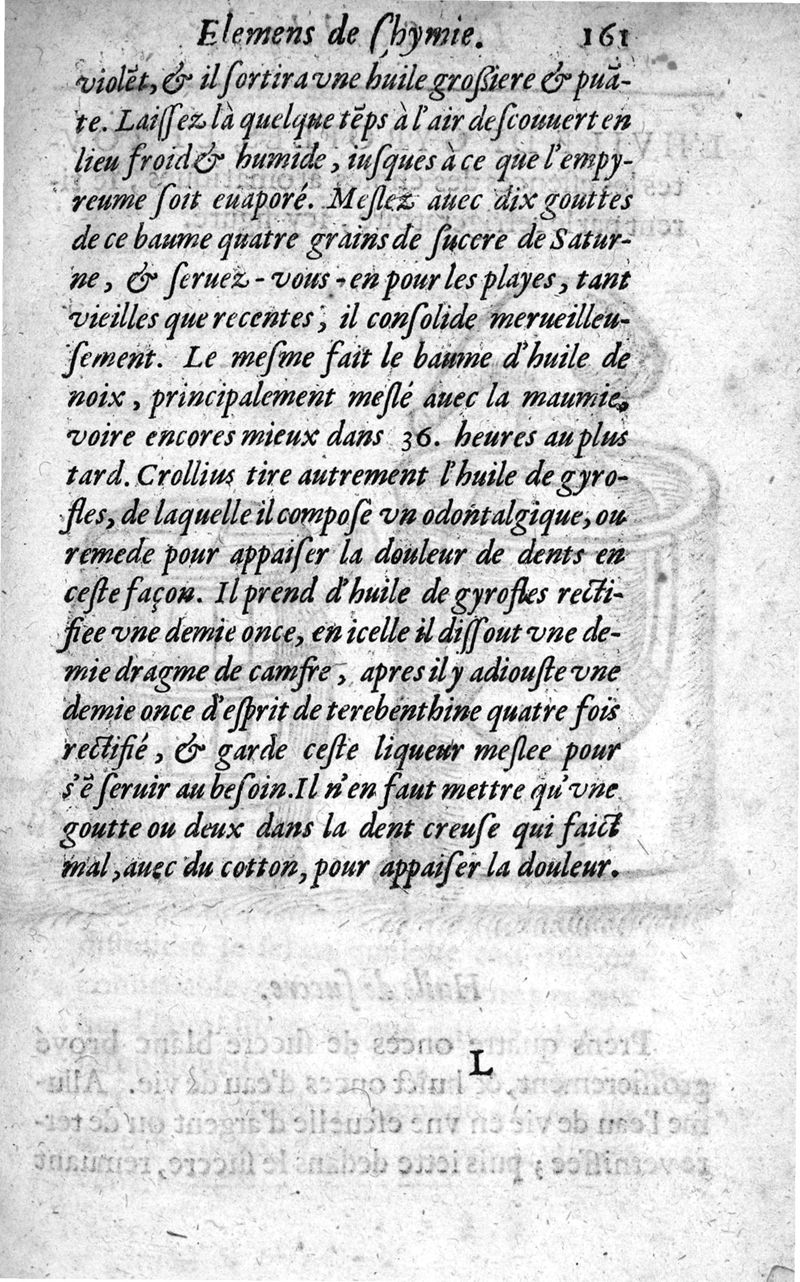 Elemens de Chymie. 161
violẽt, & il sortira vne huile großiere & puã-
te. Laiſſez là quelque tẽps à l'air deſcouuert en
lieu froid & humide, iuſques à ce que l'empy-
reume ſoit euaporé. Meſlez auec dix gouttes
de ce baume quatre grains de ſuccre de Satur-
ne, & ſeruez-vous-en pour les playes, tant
vieilles que recentes, il conſolide merueilleu-
ſement. Le meſme fait le baume d'huile de
noix, principalement meſlé auec la maumie,
voire encores mieux dans 36. heures au plus
tard. Crollius tire autrement l'huile de gyro-
fles, de laquelle il compoſe vn odontalgique, ou
remede pour appaiſer la douleur de dents en
ceſte façon. Il prend d'huile de gyrofles recti-
fiee vne demie once, en icelle il diſſout vne de-
mie dragme de camfre, apres il y adiouſte vne
demie once d'eſprit de terebenthine quatre fois
rectifié, & garde ceſte liqueur meſlee pour
s'ẽ ſeruir au beſoin. Il n'en faut mettre qu'vne
goutte ou deux dans la dent creuſe qui faict
mal, auec du cotton, pour appaiſer la douleur.
Huile de ſuccre.
L
Prens quatre onces de ſuccre blanc broyé
groſſierement, & huict onces d'eau de vie. Allu-
me l'eau de vie en vne eſcuelle d'argent ou de ter-
re verniſſée ; puis iette dedans le ſuccre, remuant